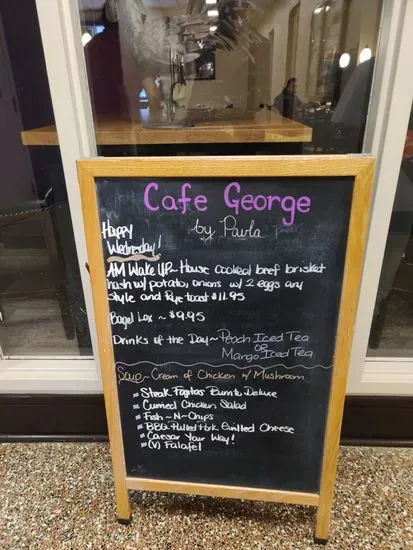 Cafe George
by Pavla
Happy
Wednesday!
AM Wake UP~ House cooked beef brisket
hash w/ potato, onions w/ 2 eggs any
style and Rye toast $11.95
Bagel Lox ~ $9.95
Drinks of the Day~ Peach Iced Tea
OR
Mango Iced Tea
Soup~ Cream of Chicken w/ Mushroom
Steak Fajitas Burrito Deluxe
Curried Chicken Salad
Fish ~N~ Chips
BBQ Pulled Pork Grilled Cheese
Caesar Your Way!
(V) Falafel